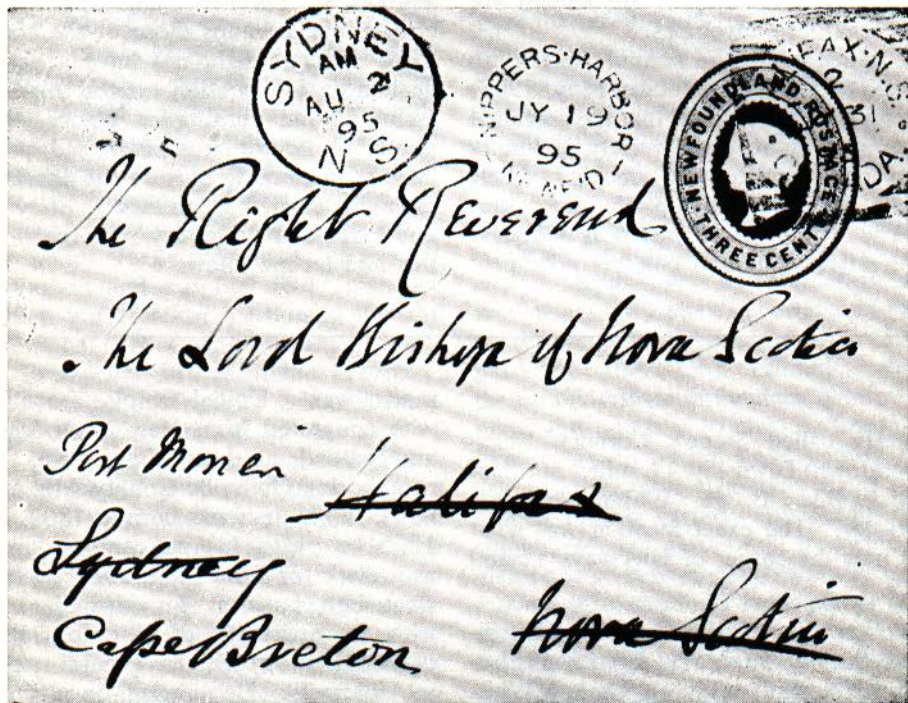 SYDNEY
AM
AU 2
95
N S.
NIPPERS·HARBOR
JY 19
95
NF'D
FAX·N.S.
2
31
DA.
NEWFOUNDLAND POSTAGE
THREE CENTS
The Right Reverend
The Lord Bishop of Nova Scotia
Port Morien
Halifax
Sydney
Cape Breton
Nova Scotia